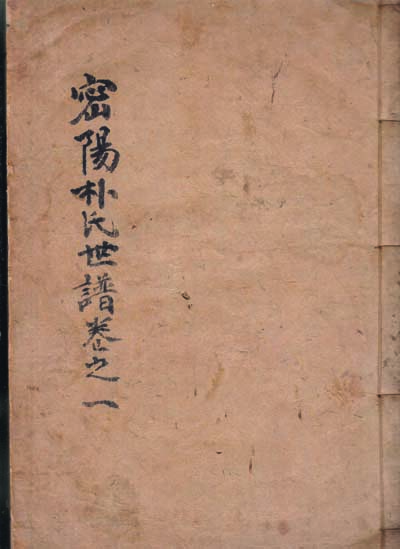 密陽朴氏世譜卷之一